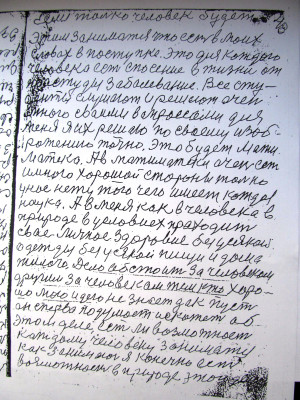 Если только человек будет
этим заниматся что есть в моих
словах в поступке. Это для каждого
человека есть спосение в жизни от
простуды заболевание. Все сту-
денты слушают и решают очен
много своими вопросами для
меня я их решаю по своему изоб-
ротению точно. Это будет мати
матека. А в математики ачен есть
много хорошой стороны только
у нас нету того чего имеет каждая
наука. А в меня как в человека в
природе в условиях праходит
свое личное здоровие без всякой
одежды без всякой пищи и дома
жилого Дело обстоит за человеком
другим за человекам тем кто хоро-
шо мою идею не знает дак пуст
он сперва подумает и скажет об
этом деле, ест ли возможност
каждому человеку занимать
как занимаюся я конечно есть
возможност в природе этого